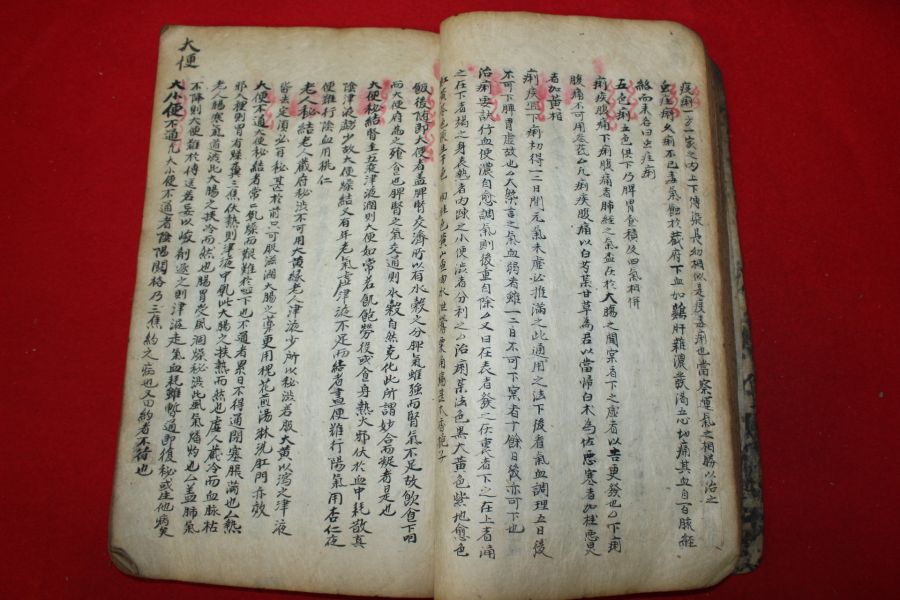 大便
疫痢一方一家之內上下傳染長幼相似是疫毒痢也當察運氣之相勝以治之
虫疰痢久痢不已毒氣蝕於藏府下血如鷄肝雜膿瘀渴五心切痛其血自百脉經
絡而來名曰虫疰痢
五色痢五色俱下乃脾胃食積及四氣相併
痢疾腹痛下痢腹痛者肺經之氣在於大腸之間實者下之虛者以苦更發也ム下痢
腹痛不可用參芪ム凡痢疾腹痛以白芍藥甘草為君以當歸白朮為佐惡寒者加桂惡熱
者加黃栢
痢疾宜下痢初得一二日間元氣未虛必推滌之此通用之法下後看氣血調理五日後
不可下脾胃虛故也ム大槩言之氣血弱者雖一二日不可下實者十餘日後亦可下也
治痢要訣行血使濃自愈調氣則後重自除ム又曰在表者發之在裏者下之在上者涌
之在下者竭之身表熱者內踈之小便澁者分利之ム治痢藥法色黑大黃色紫地愈色
飯後隨即大便者盖脾腎交濟所以有水穀之分脾氣雖强而腎氣不足故飮食下咽
而大便府為之飱合也脾腎之氣交通則水穀自然克化此所謂妙合而凝者是也
大便秘結腎主五液津液潤則大便如常若飢飽勞役或食身熱火邪伏於血中耗散真
陰津液虧少故大便燥結又有年老氣虛津液不足而結者晝便難行陽氣用杏仁夜
便難行陰血用桃仁
老人秘結老人藏府秘澁不可用大黃緣老人津液少所以秘澁若服大黃以瀉之津液
皆去定須必再秘甚於前只可服滋潤大腸之藥更用槐花煎湯淋洗肛門亦效
大便不通大便秘結者常常乾燥而艱難於下也不通者累日不得通閉塞脹滿也ム熱
邪入裡則胃有燥糞三焦伏熱則津液中乾此大腸之挾熱而然也虛人藏冷而血脉枯
老人腸寒氣道澁此大腸之挾冷而然也腸胃受風涸燥秘澁此風氣燔灼也ム盖肺氣
不降則大便難於傳送若妄以峻劑逐之則津液走氣血耗雖暫通即後秘或生他病矣
大小便不通凡大小便不通者陰陽関格乃三焦約之病也又曰約者不行也